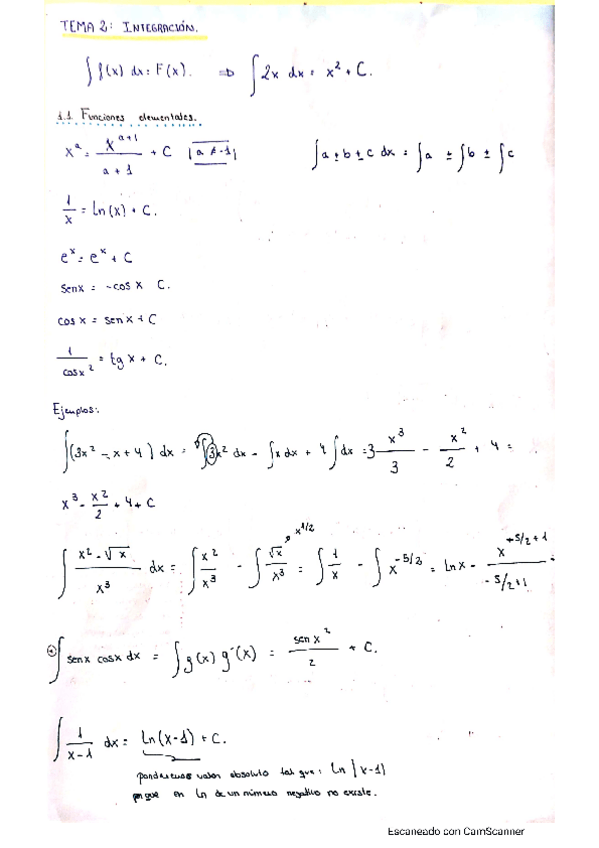 TEMA 2: INTEGRACIÓN.
∫ f(x) dx = F(x). ⇒ ∫ 2x dx = x² + C.
1.1 Funciones elementales.
xᵃ = xᵃ⁺¹/(a+1) + C |a ≠ -1| ∫ a ± b ± c dx = ∫a ± ∫b ± ∫c
1/x = Ln(x) + C.
eˣ = eˣ + C
senx = -cos x C.
cos x = sen x + C
1/cosx² = tg x + C.
Ejemplos:
∫(3x² - x + 4) dx = ∫3x² dx - ∫x dx + 4∫dx = 3 x³/3 - x²/2 + 4 =
x³ - x²/2 + 4 + C
x^1/2
∫ (x² - √x)/x³ dx = ∫ x²/x³ - ∫ √x/x³ = ∫ 1/x - ∫ x^-5/2 = Ln x - x^+5/2+1/-5/2+1 =
∫ senx cosx dx = ∫ g(x) g'(x) = sen x²/2 + C.
∫ 1/(x-1) dx = Ln(x-1) + C.
pondremos valor absoluto tal que: Ln |x-1|
porque en Ln de un número negativo no existe.
Escaneado con CamScanner